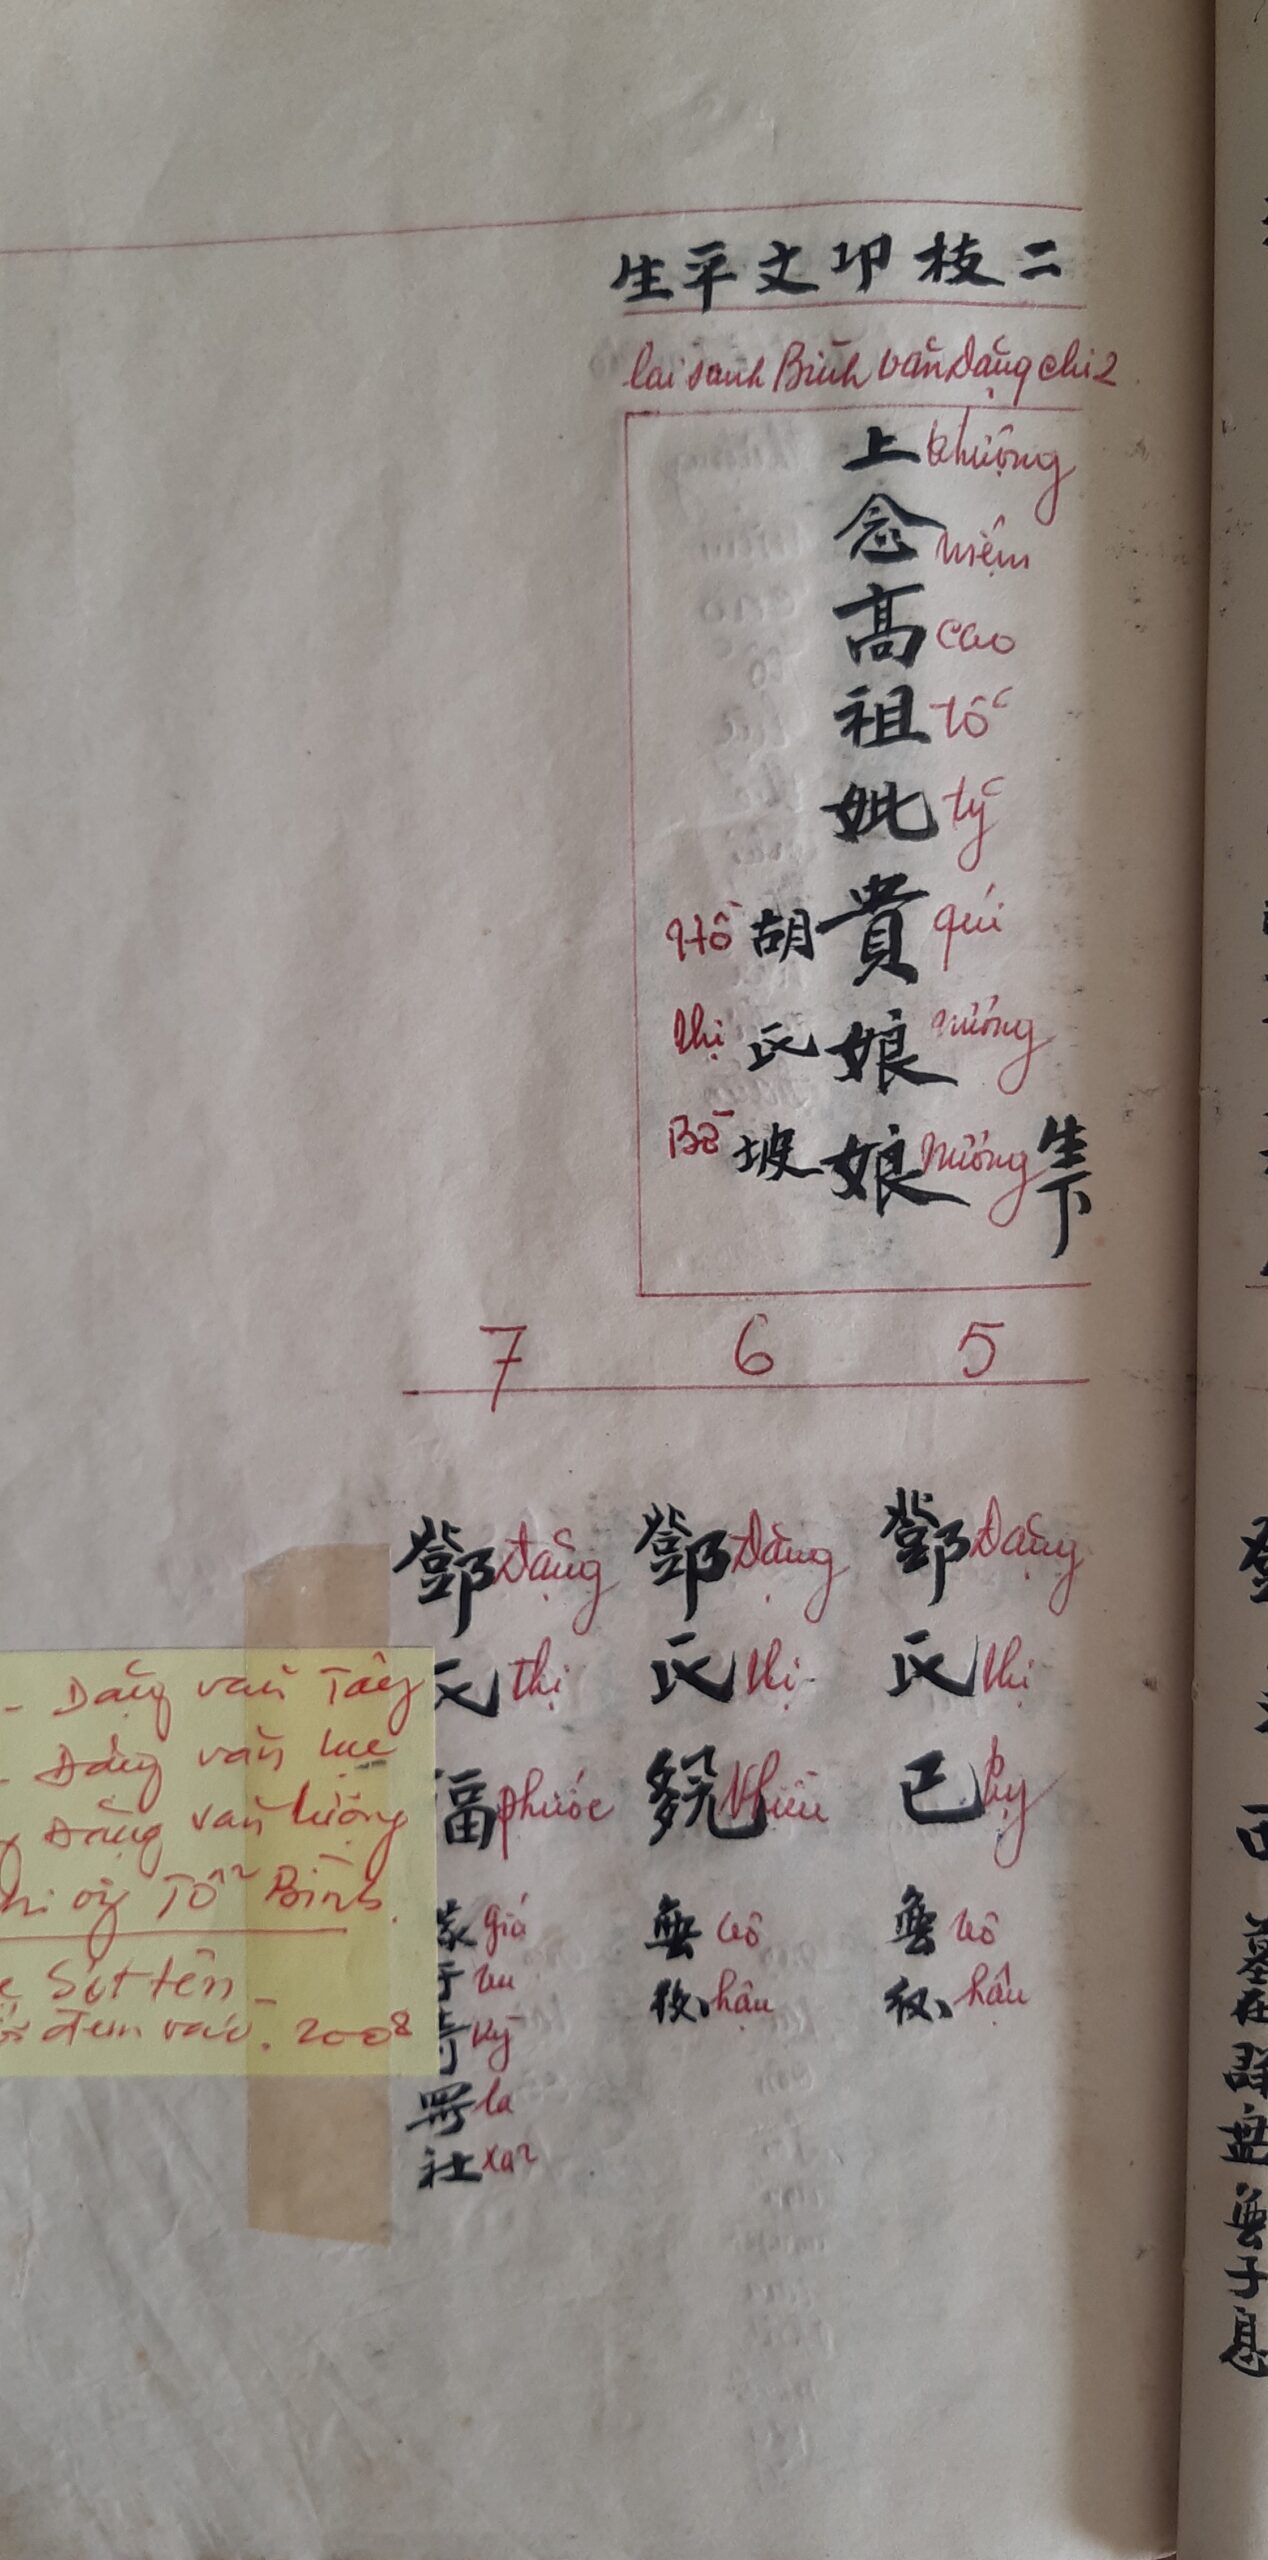 二枝卭文平生
lai sanh Bình văn Đặng chi 2
上 thượng
念 niệm
高 cao
祖 tổ
妣 tỷ
貴 quí
娘 nương
娘 nương
胡 Hồ
氏 thị
坡 Bờ
生下
5
6
7
鄧 Đặng
氏 thị
已 kỷ
無 vô
後 hậu
鄧 Đặng
氏 thị
Nhiều
無 vô
後 hậu
鄧 Đặng
氏 thị
福 phước
嫁 giá
于 vu
奇 kỳ
羅 la
社 xã
- Đặng văn Tây
- Đặng văn lục
Đặng văn lượng
ôg Tổ Bình.
Sót tên
đem vào. 2008
墓在
無子息